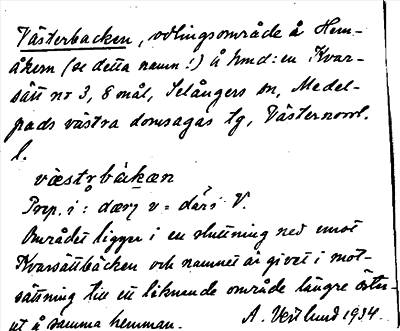 Västerbacken, odlingsområde å Hem-
åkern (se detta namn!) å hmd:en Kvar-
sätt nr 3, 8 mål, Selångers sn, Medel-
pads västra domsagas tg, Västernorrl.
l.
væstrbåkan
Prep. i: dærj v = där i V.
Området ligger i en sluttning ned emot
Kvarsättbäcken och namnet är givet i mot-
sättning till ett liknande område längre öster-
ut å samma hemman. A. Westlund 1934.